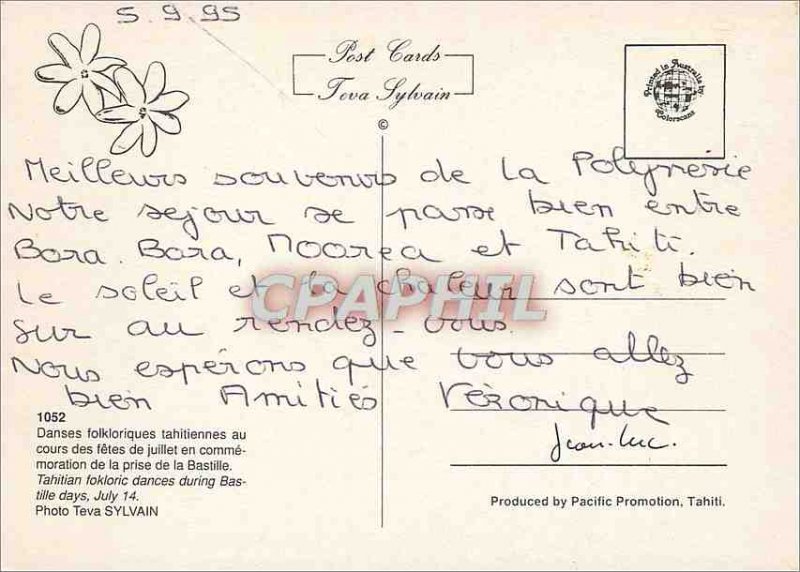 5.9.95
Post Cards
Teva Sylvain
©
Printed in Australia by:
Colorscans
Meilleurs souvenirs de la Polynésie
Notre sejour se passe bien entre
Bora. Bora, Moorea et Tahiti.
Le soleil et la chaleur sont bien
sur au rendez-vous.
Nous espérons que vous allez
bien Amitiés Véronique
Jean-Luc.
CPAPHIL
1052
Danses folkloriques tahitiennes au
cours des fêtes de juillet en commé-
moration de la prise de la Bastille.
Tahitian fokloric dances during Bas-
tille days, July 14.
Photo Teva SYLVAIN
Produced by Pacific Promotion, Tahiti.